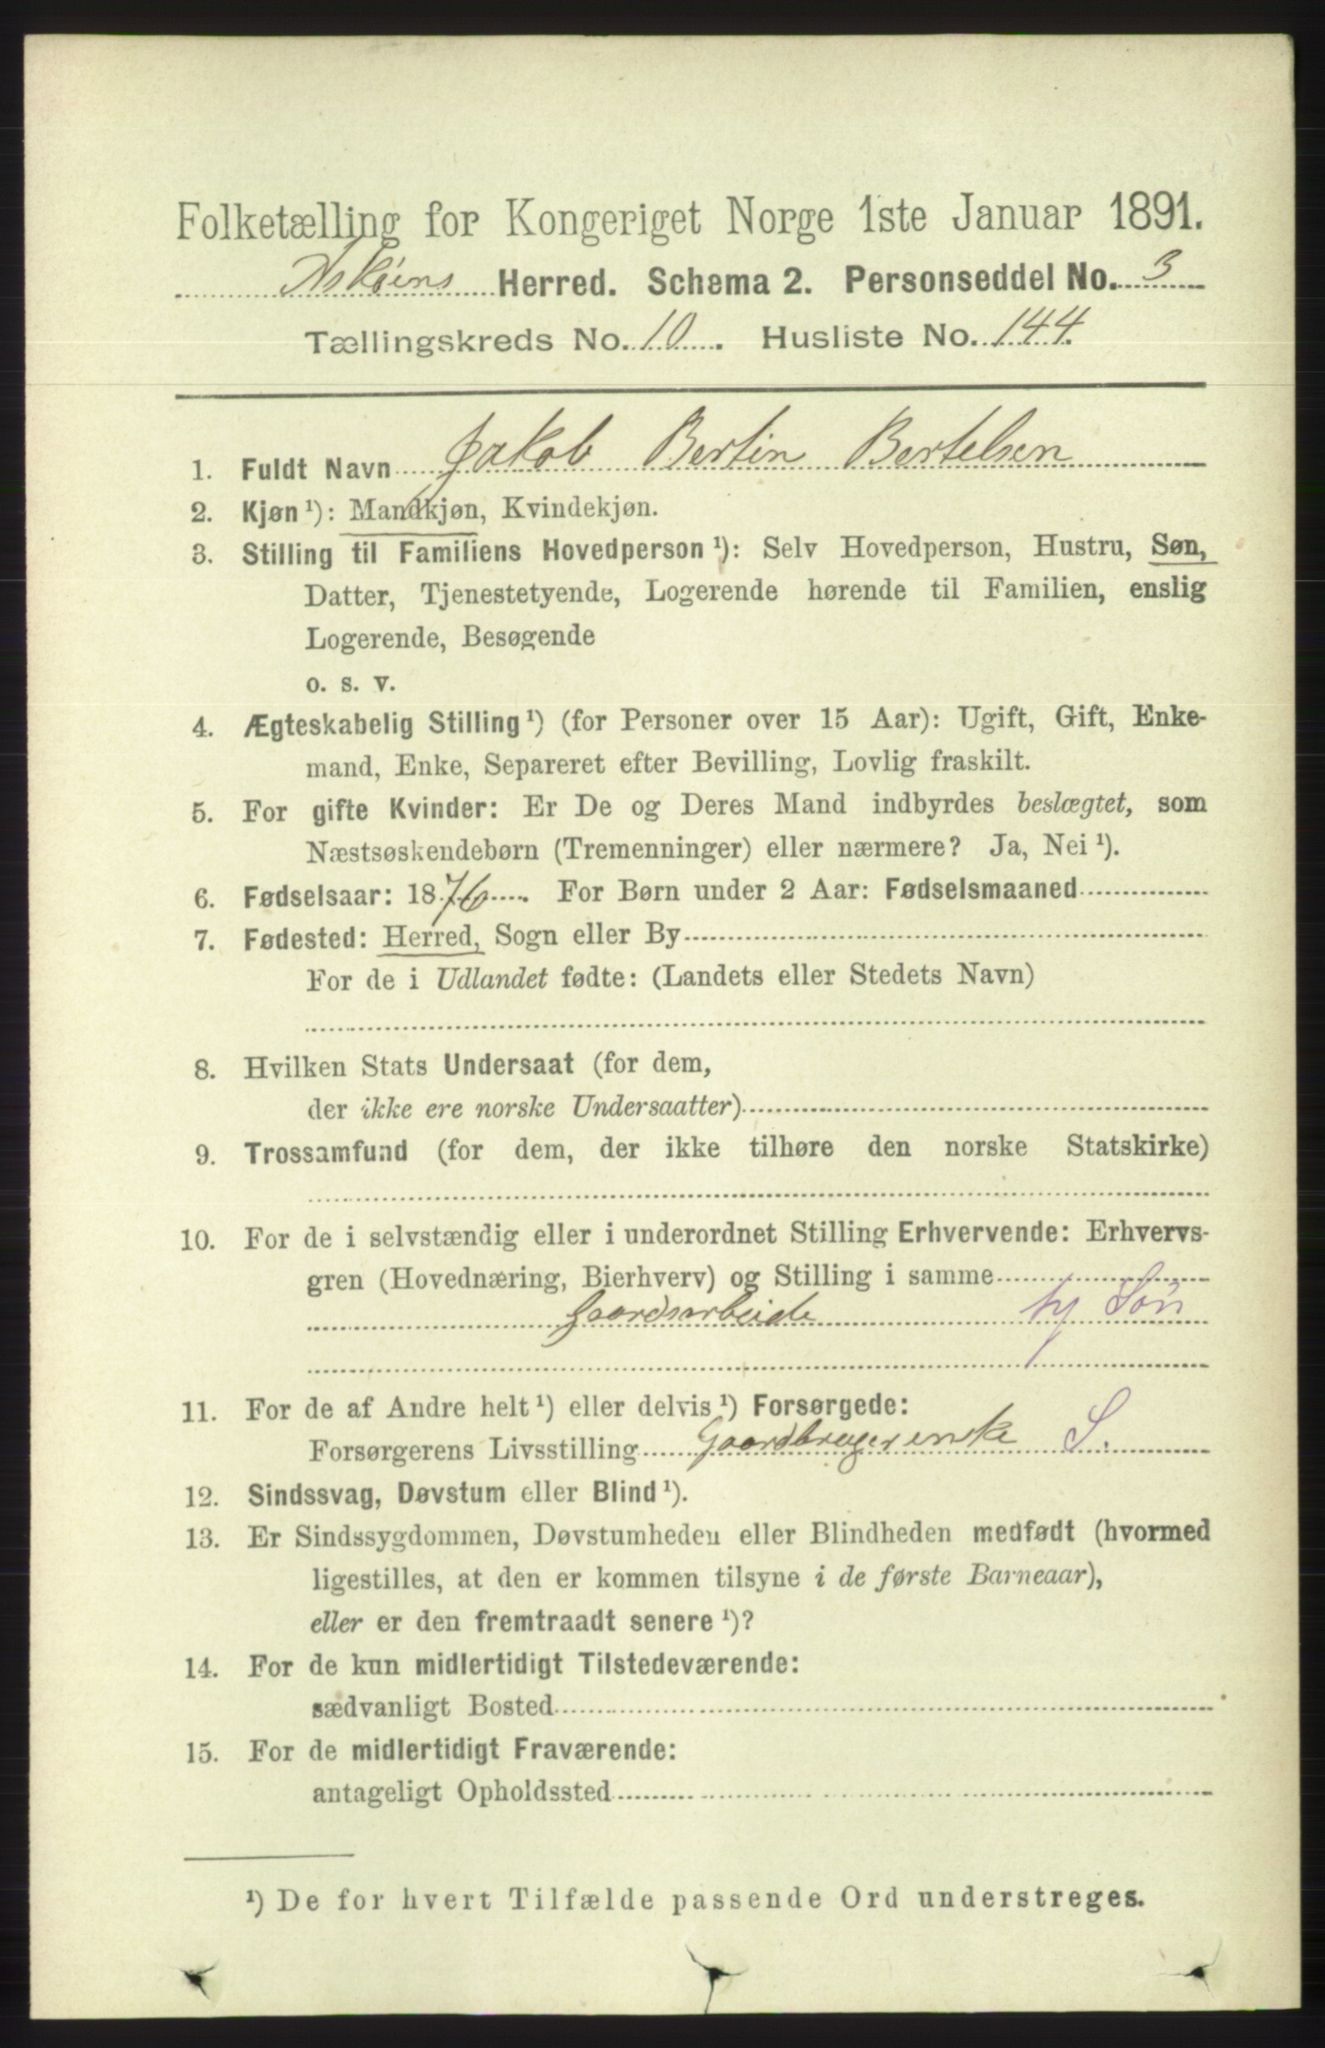 Folketælling for Kongeriget Norge 1ste Januar 1891.
Askøens Herred. Schema 2. Personseddel No. 3
Tællingskreds No. 10. Husliste No. 144.
1. Fuldt Navn Jakob Bertin Bertelsen
2. Kjøn ¹): Mandkjøn, Kvindekjøn.
3. Stilling til Familiens Hovedperson ¹): Selv Hovedperson, Hustru, Søn,
Datter, Tjenestetyende, Logerende hørende til Familien, enslig
Logerende, Besøgende
o. s. v.
4. Ægteskabelig Stilling ¹) (for Personer over 15 Aar): Ugift, Gift, Enke-
mand, Enke, Separeret efter Bevilling, Lovlig fraskilt.
5. For gifte Kvinder: Er De og Deres Mand indbyrdes beslægtet, som
Næstsøskendebørn (Tremenninger) eller nærmere? Ja, Nei ¹).
6. Fødselsaar: 1876. For Børn under 2 Aar: Fødselsmaaned
7. Fødested: Herred, Sogn eller By
For de i Udlandet fødte: (Landets eller Stedets Navn)
8. Hvilken Stats Undersaat (for dem,
der ikke ere norske Undersaatter)
9. Trossamfund (for dem, der ikke tilhøre den norske Statskirke)
10. For de i selvstændig eller i underordnet Stilling Erhvervende: Erhvervs-
gren (Hovednæring, Bierhverv) og Stilling i samme
Gaardsarbeide hj Søn
11. For de af Andre helt ¹) eller delvis ¹) Forsørgede:
Forsørgerens Livsstilling Gaardbrugerenke S.
12. Sindssvag, Døvstum eller Blind ¹).
13. Er Sindssygdommen, Døvstumheden eller Blindheden medfødt (hvormed
ligestilles, at den er kommen tilsyne i de første Barneaar),
eller er den fremtraadt senere ¹)?
14. For de kun midlertidigt Tilstedeværende:
sædvanligt Bosted
15. For de midlertidigt Fraværende:
antageligt Opholdssted
¹) De for hvert Tilfælde passende Ord understreges.